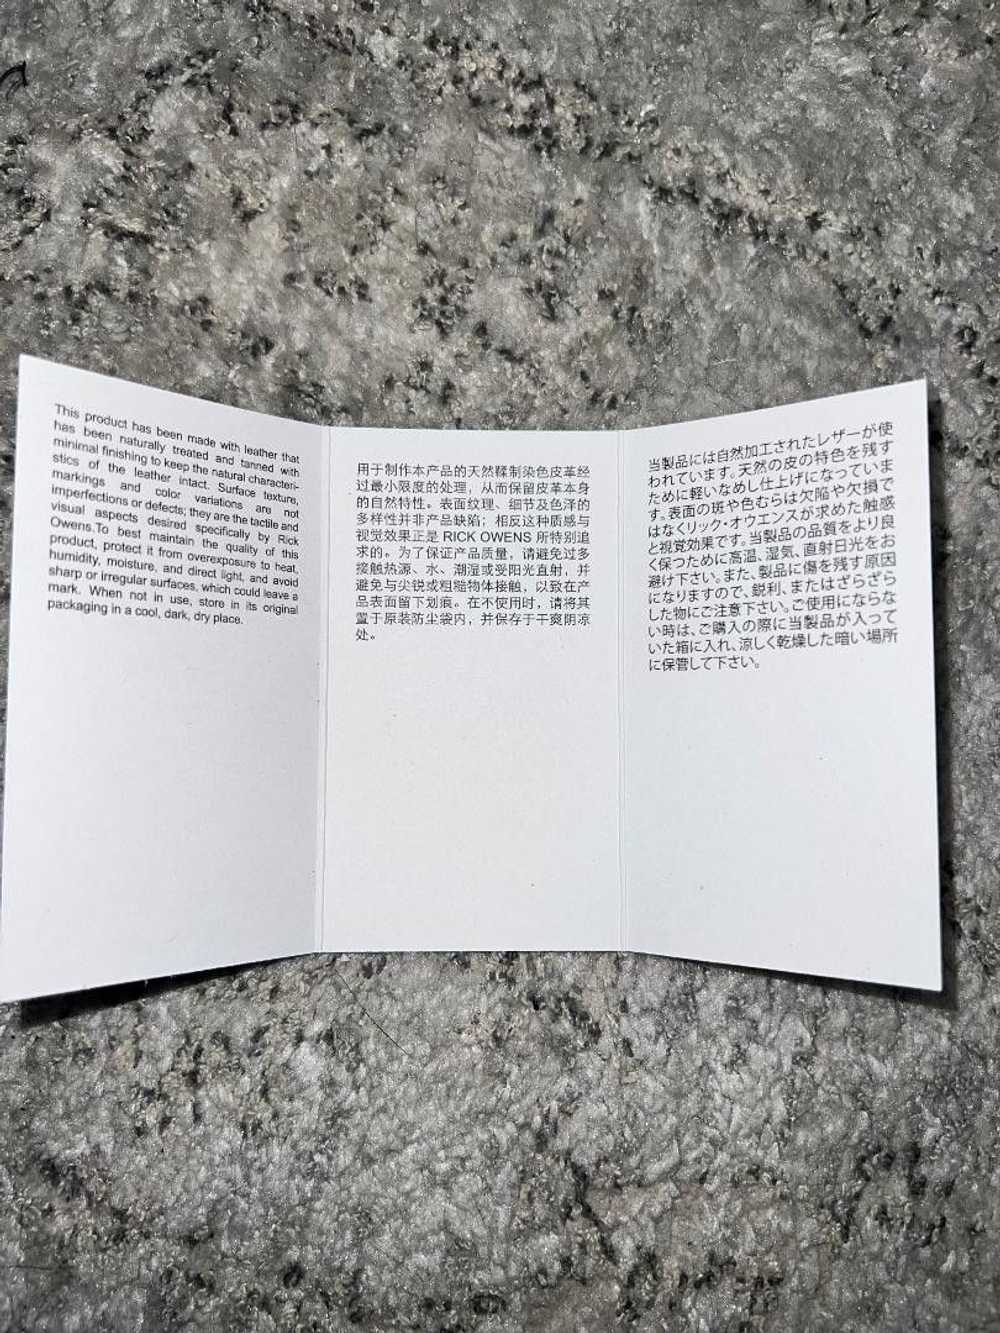 This product has been made with leather that
has been naturally treated and tanned with
minimal finishing to keep the natural characteri-
stics of the leather intact. Surface texture,
markings and color variations are not
imperfections or defects; they are the tactile and
visual aspects desired specifically by Rick
Owens.To best maintain the quality of this
product, protect it from overexposure to heat,
humidity, moisture, and direct light, and avoid
sharp or irregular surfaces, which could leave a
mark. When not in use, store in its original
packaging in a cool, dark, dry place.
用于制作本产品的天然鞣制染色皮革经
过最小限度的处理，从而保留皮革本身
的自然特性。表面纹理、细节及色泽的
多样性并非产品缺陷；相反这种质感与
视觉效果正是 RICK OWENS 所特别追
求的。为了保证产品质量，请避免过多
接触热源、水、潮湿或受阳光直射，并
避免与尖锐或粗糙物体接触，以致在产
品表面留下划痕。在不使用时，请将其
置于原装防尘袋内，并保存于干爽阴凉
处。
当製品には自然加工されたレザーが使
われています。天然の皮の特色を残す
ために軽いなめし仕上げになっていま
す。表面の斑や色むらは欠陥や欠損で
はなくリック・オウエンスが求めた触感
と視覚効果です。当製品の品質をより良
く保つために高温、湿気、直射日光をお
避け下さい。また、製品に傷を残す原因
になりますので、鋭利、またはざらざら
した物にご注意下さい。ご使用にならな
い時は、ご購入の際に当製品が入って
いた箱に入れ、涼しく乾燥した暗い場所
に保管して下さい。